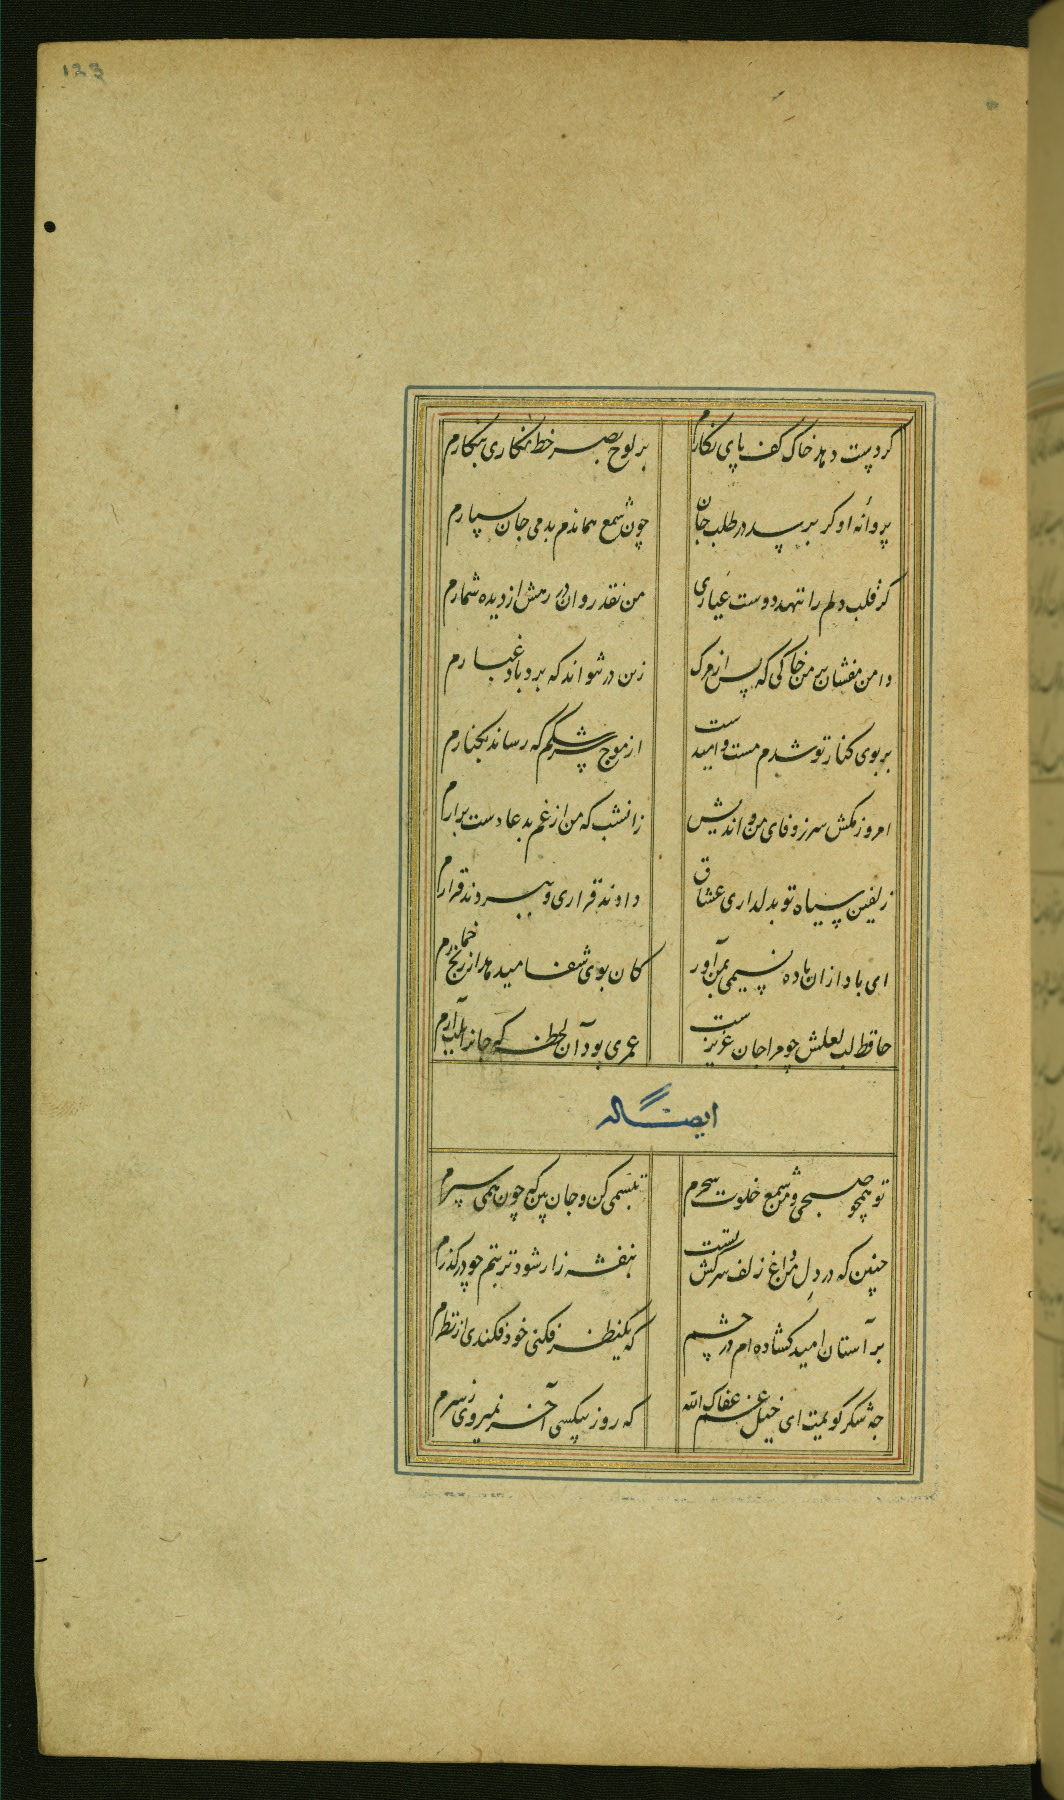 123
کر دست دهد خاک کف پای نکارم بر لوح بصر خط نکاری بنکارم
پروانهٔ او کر برسد در طلب جان چون شمع هماندم بدمی جان سپارم
کر قلب دلم را ننهد دوست عیاری من نقد روان در رهش از دیده شمارم
دامن مفشان بر من خاکی که پس از مرک زین در نتواند که برد باد غبارم
بر بوی کنار تو شدم مست و امیدست از موج سرشکم که رساند بکنارم
امروز مکش سر ز وفای من و اندیش زانشب که من از غم بدعا دست برارم
زلفین سیاه تو بدلداری عشاق دادند قراری و ببردند قرارم
ای باد ازان باده نسیمی بمن آور کان بوی شفا میدهد از رنج خمارم
حافظ لب لعلش چو مرا جان عزیزست عمری بود آن لحظه که جانرا بلب آرم
ایضاله
تو همچو صبحی و من شمع خلوت سحرم تبسمی کن و جان بین که چون همی سپرم
چنین که در دل من داغ زلف سرکش تست بنفشه زار شود تربتم چو درکذرم
بر آستان امید کشاده ام در چشم که یکنظر فکنی خود فکندی از نظرم
چه شکر کویمت ای خیل غم عفاک الله که روز بیکسی آخر نمیروی ز سرم